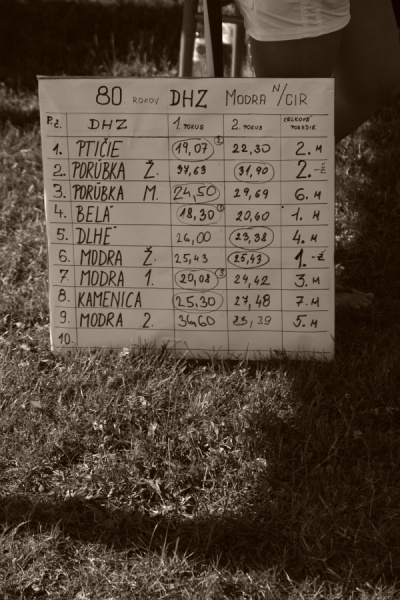 80 ROKOV DHZ MODRA N/CIR
P.č. DHZ 1. POKUS 2. POKUS CELKOVÉ PORADIE
1. PTIČIE 19,07 1 22,30 2. M
2. PORÚBKA Ž. 37,69 31,90 2. Ž
3. PORÚBKA M. 24,50 29,69 6. M
4. BELÁ 18,30 20,60 1. M
5. DLHÉ 26,00 23,38 4. M
6. MODRA Ž. 25,43 25,43 1. Ž
7 MODRA 1. 20,08 3 24,42 3. M
8. KAMENICA 25,30 27,48 7. M
9. MODRA 2. 34,60 23,39 5. M
10.